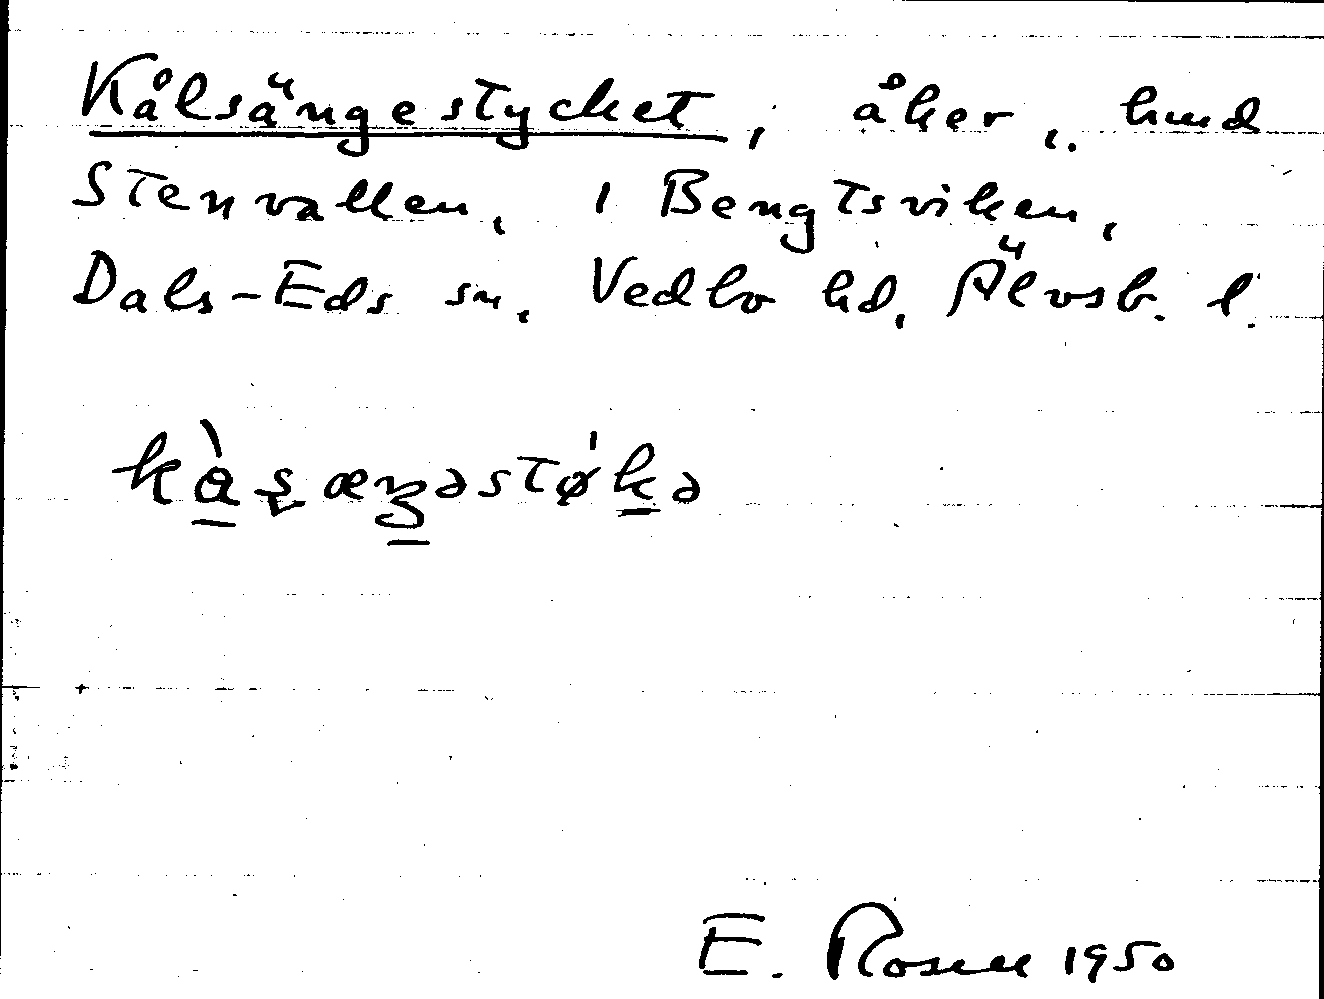 Kålsängestycket, åker, hmd
Stenvallen, i Bengtsviken,
Dals-Eds sn, Vedbo hd, Älvsb. l.
kàşæŋəstø'kə
E. Rosell 1950